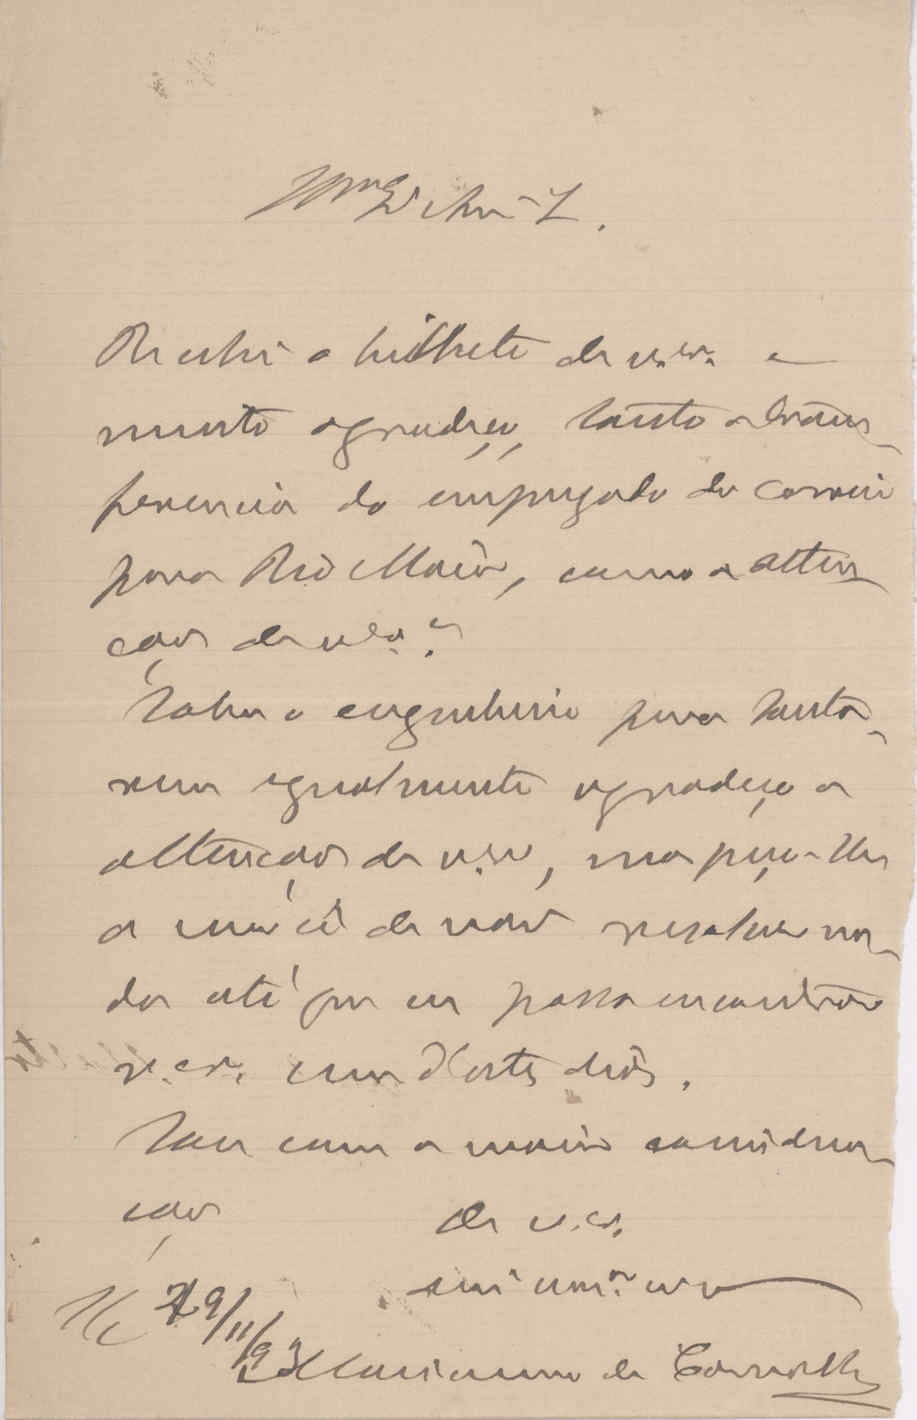 Recebi o bilhete de v. ex. e
muito agradeço, tanto a trans-
ferencia do empregado do correio
para Rio Maior, como a atten
ção de v. ex.ª
Sobre o engenheiro para Santa-
rem igualmente agradeço a
attenção de v. ex., mas peço-lhe
a mercê de não resolver na-
da até que eu possa encontrar
v. ex. um d'estes dias.
Sou com a maior considera-
ção
de v. ex.
29/11/93 Marianno de Carvalho